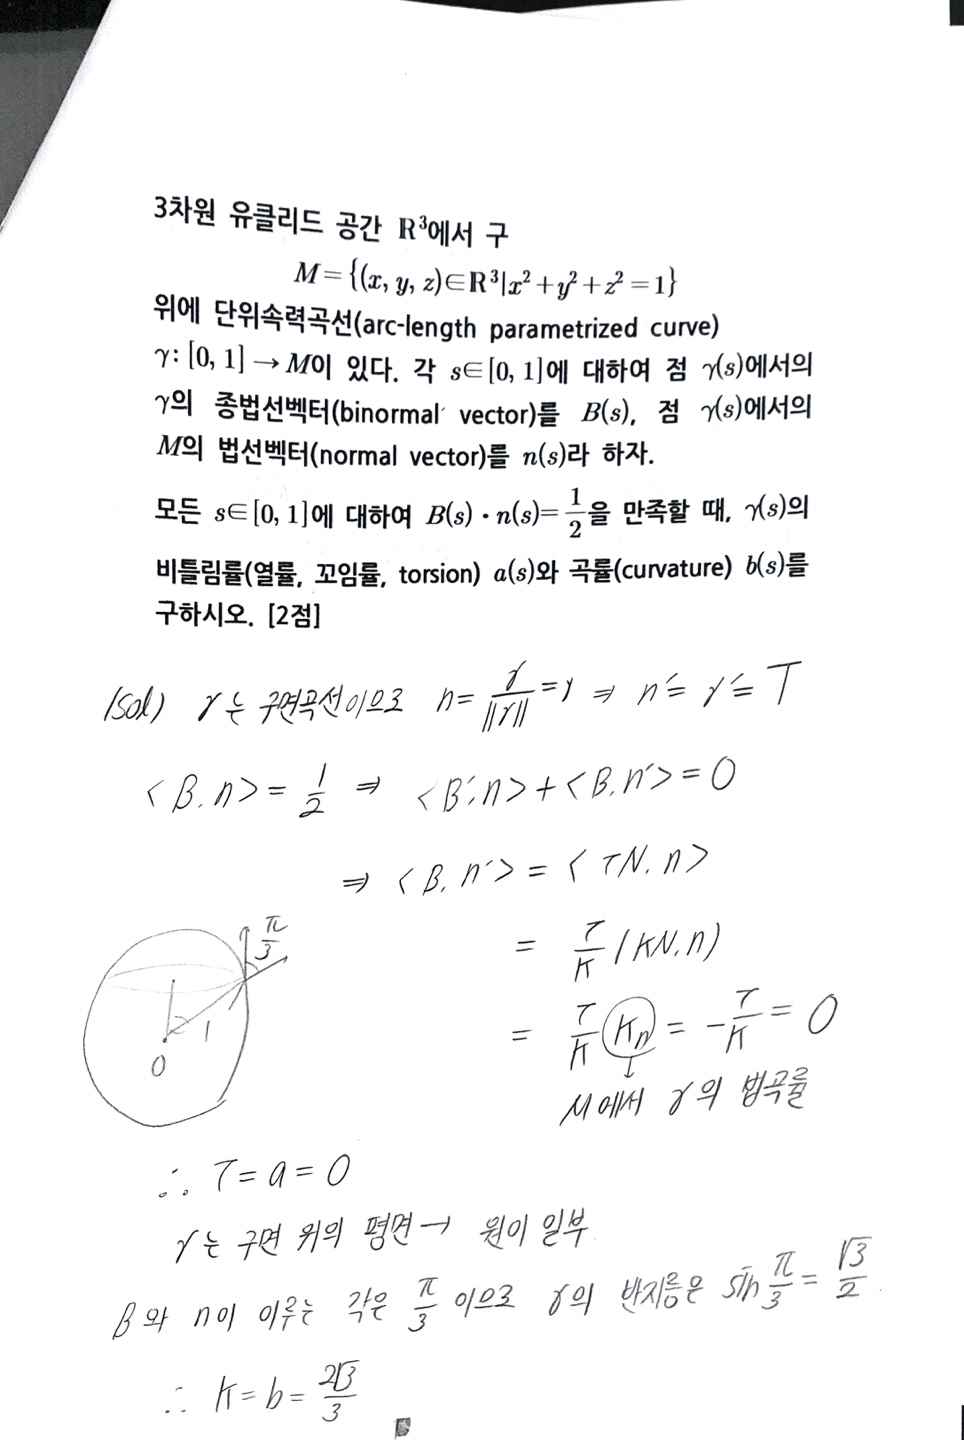 3차원 유클리드 공간 ℝ³에서 구
M={(x, y, z)∈ℝ³|x²+y²+z²=1}
위에 단위속력곡선(arc-length parametrized curve)
γ: [0, 1]→M이 있다. 각 s∈[0, 1]에 대하여 점 γ(s)에서의
γ의 종법선벡터(binormal vector)를 B(s), 점 γ(s)에서의
M의 법선벡터(normal vector)를 n(s)라 하자.
모든 s∈[0, 1]에 대하여 B(s)·n(s)=1/2을 만족할 때, γ(s)의
비틀림률(열률, 꼬임률, torsion) a(s)와 곡률(curvature) b(s)를
구하시오. [2점]
(sol) γ는 구면곡선이므로 n= γ/||γ|| =γ ⇒ n′= γ′= T
<B, n> = 1/2 ⇒ <B′, n>+<B, n′> = 0
⇒ <B, n′> = <τN, n>
= τ/κ (κN, n)
π/3
= τ/κ κn = -τ/κ = 0
1
O
M에서 γ의 법곡률
∴ τ= a = 0
γ는 구면 위의 평면→ 원이 일부
B와 n이 이루는 각은 π/3 이므로 γ의 반지름은 sin π/3 = √3/2
∴ κ= b= 2√3/3